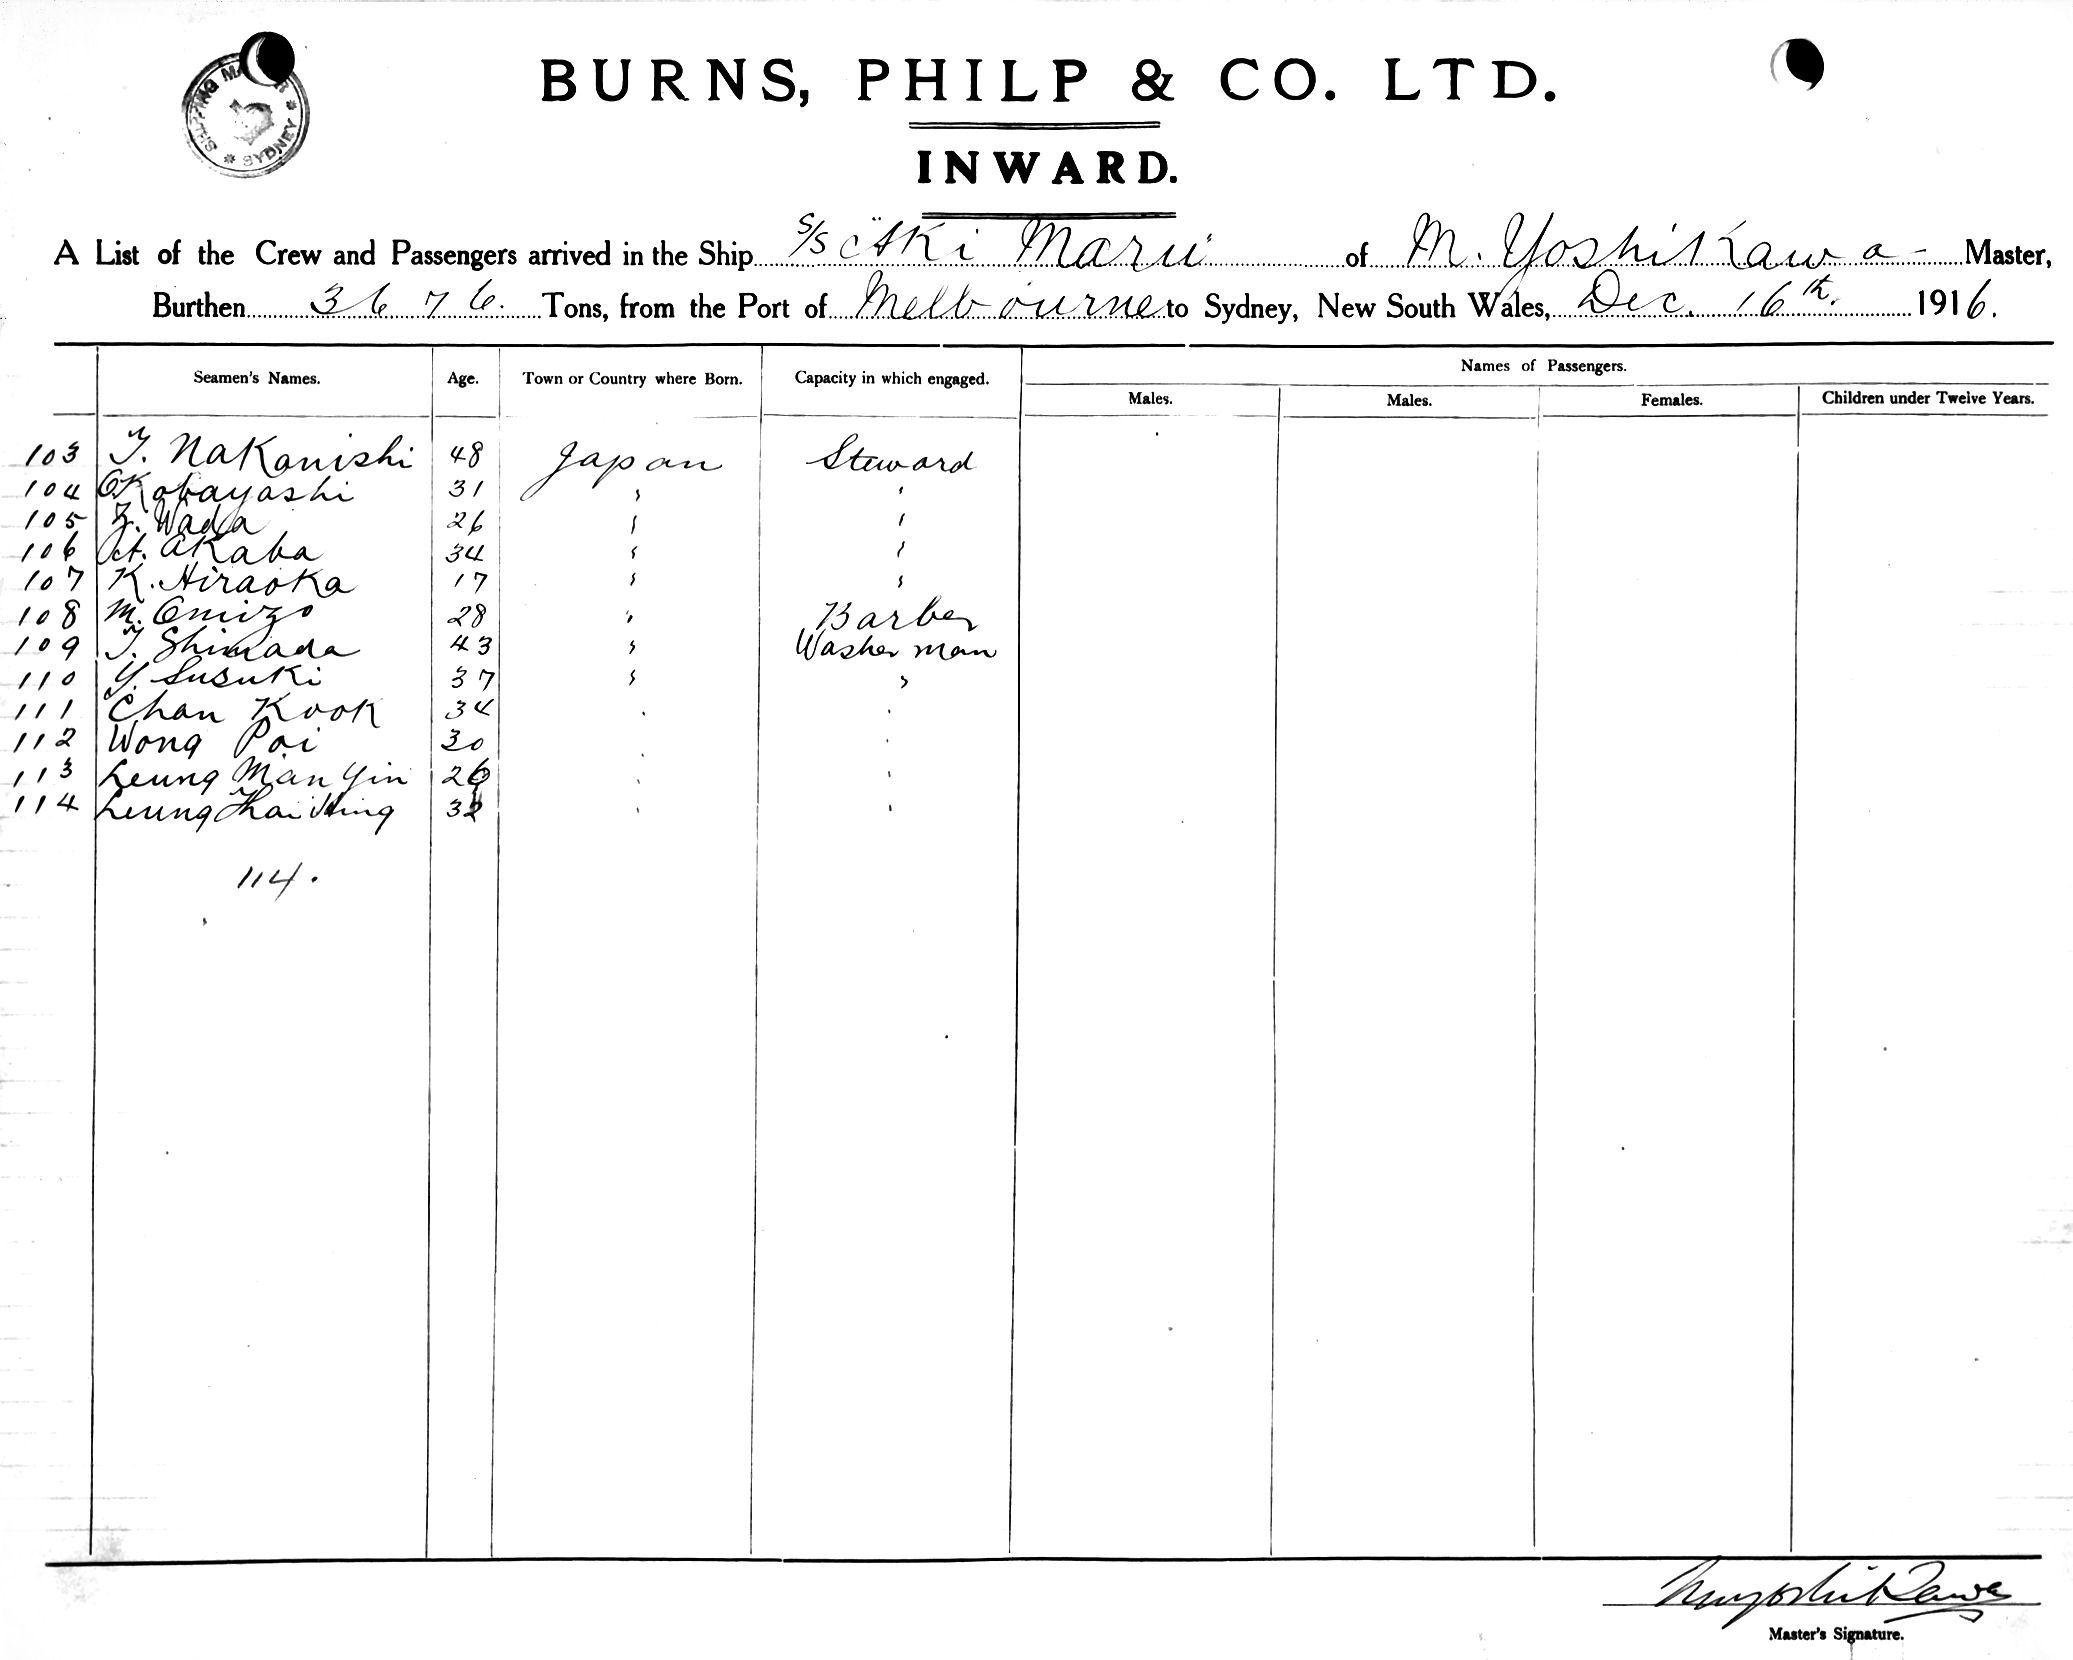 SHIPPING MASTER * SYDNEY *
BURNS, PHILP & CO. LTD.
INWARD.
A List of the Crew and Passengers arrived in the Ship S/S "Aki Maru" of M. Yoshikawa - Master,
Burthen 3676. Tons, from the Port of Melbourne to Sydney, New South Wales, Dec. 16th. 1916.
Names of Passengers.
Seamen's Names. Age. Town or Country where Born. Capacity in which engaged. Males. Males. Females. Children under Twelve Years.
103 T. Nakanishi 48 Japan Steward
104 K. Kobayashi 31 " "
105 Wada 26 " "
106 Akaba 34 " "
107 K. Hiraoka 17 " "
108 M. Omizo 28 " Barber
109 T. Shimada 43 " Washerman
110 Y. Susuki 37 " "
111 Chan Kook 34 " "
112 Wong Poi 30 " "
113 Leung Man Yin 26 " "
114 Leung " "
114.
Master's Signature.